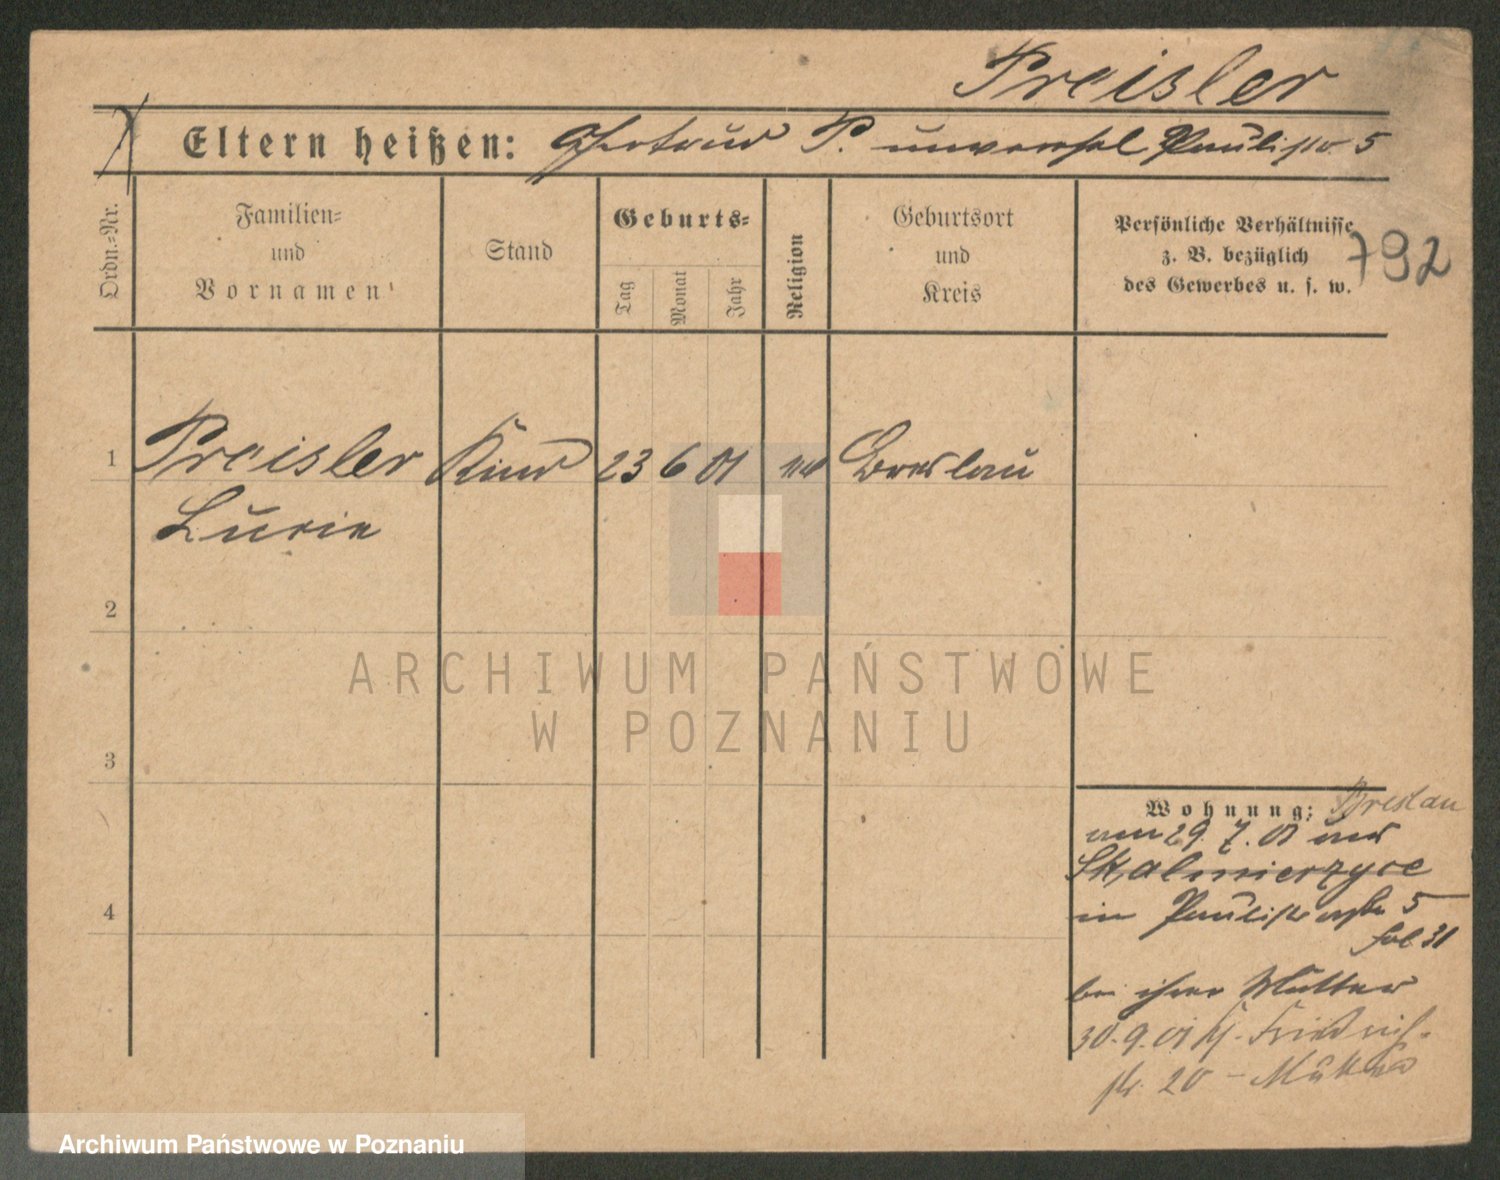 Preisler
Eltern heißen: Gertrud P. unverehel. Paulistr. 5
Ordn.=Nr.
Familien=
und
Vornamen
Stand
Geburts=
Tag
Monat
Jahr
Religion
Geburtsort
und
Kreis
Persönliche Verhältnisse
z. B. bezüglich
des Gewerbes u. s. w.
792
1 Preisler Kind 23 6 01 Breslau
Lucie
2
ARCHIWUM PAŃSTWOWE
W POZNANIU
3
Wohnung: Breslau
am 29. 7. 01 aus
Skalmierzyce
in 5
fol 31
bei ihrer Mutter
30.9.01 Friedrich-
str. 20 - Mutter
4
Archiwum Państwowe w Poznaniu